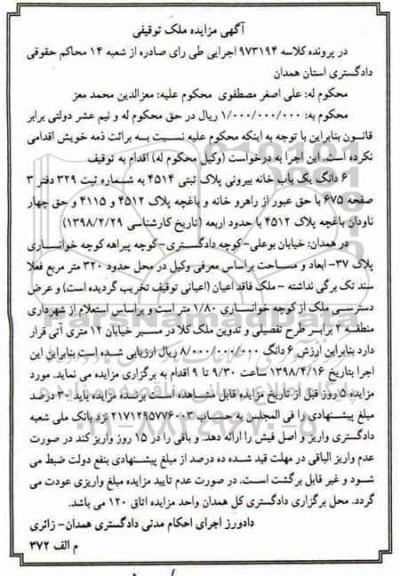 آگهی مزایده ملک توقیفی
در پرونده کلاسه ۹۷۳۱۹۴ اجرایی طی رای صادره از شعبه ۱۴ محاکم حقوقی
دادگستری استان همدان
محکوم له: علی اصغر مصطفوی محکوم علیه: معزالدین محمد معز
محکوم به: ۱/۰۰۰/۰۰۰/۰۰۰ ریال در حق محکوم له و نیم عشر دولتی برابر
قانون بنابراین با توجه به اینکه محکوم علیه نسبت به برائت ذمه خویش اقدامی
نکرده است. این اجرا به درخواست (وکیل محکوم له) اقدام به توقیف
۶ دانگ یک باب خانه بیرونی پلاک ثبتی ۴۵۱۴ به شماره ثبت ۳۲۹ دفتر ۳
صفحه ۶۷۵ با حق عبور از راهرو خانه و باغچه پلاک ۴۵۱۲ و ۴۱۱۵ و حق چهار
ناودان باغچه پلاک ۴۵۱۲ با حدود اربعه (تاریخ کارشناسی ۱۳۹۸/۲/۲۹)
در همدان: خیابان بوعلی-کوچه دادگستری-کوچه پیراهه کوچه خوانساری
پلاک ۳۷- ابعاد و مساحت براساس معرفی وکیل در محل حدود ۳۲۰ متر مربع فعلا
سند تک برگی نداشته - ملک فاقد اعیان (اعیانی توقیف تخریب گردیده است) و عرض
دسترسی ملک از کوچه خوانساری ۱/۸۰ متر است و براساس استعلام از شهرداری
منطقه ۲ برابر طرح تفصیلی و تدوین ملک کلا در مسیر خیابان ۱۲ متری آتی قرار
دارد بنابراین ارزش ۶ دانگ ۸/۰۰۰/۰۰۰/۰۰۰ ریال ارزیابی شده است بنابراین این
اجرا بتاریخ ۱۳۹۸/۴/۱۶ ساعت ۹/۳۰ تا ۹ اقدام به برگزاری مزایده می نماید. مورد
مزایده ۵ روز قبل از تاریخ مزایده قابل مشاهده است. برنده مزایده باید ۳۰ درصد
مبلغ پیشنهادی را فی المجلس به حساب ۲۱۷۱۲۹۵۷۷۶۰۰۳ نزد بانک ملی شعبه
دادگستری واریز و اصل فیش را ارائه دهد. و باقی را در ۱۵ روز واریز کند در صورت
عدم واریز الباقی در مهلت قید شده ده درصد از مبلغ پیشنهادی بنفع دولت ضبط می
شود و غیر قابل برگشت است. در صورت عدم تایید مزایده مبلغ واریزی عودت می
گردد. محل برگزاری دادگستری کل همدان واحد مزایده اتاق ۱۲۰ می باشد.
دادورز اجرای احکام مدنی دادگستری همدان- زائری
م الف ۳۷۲